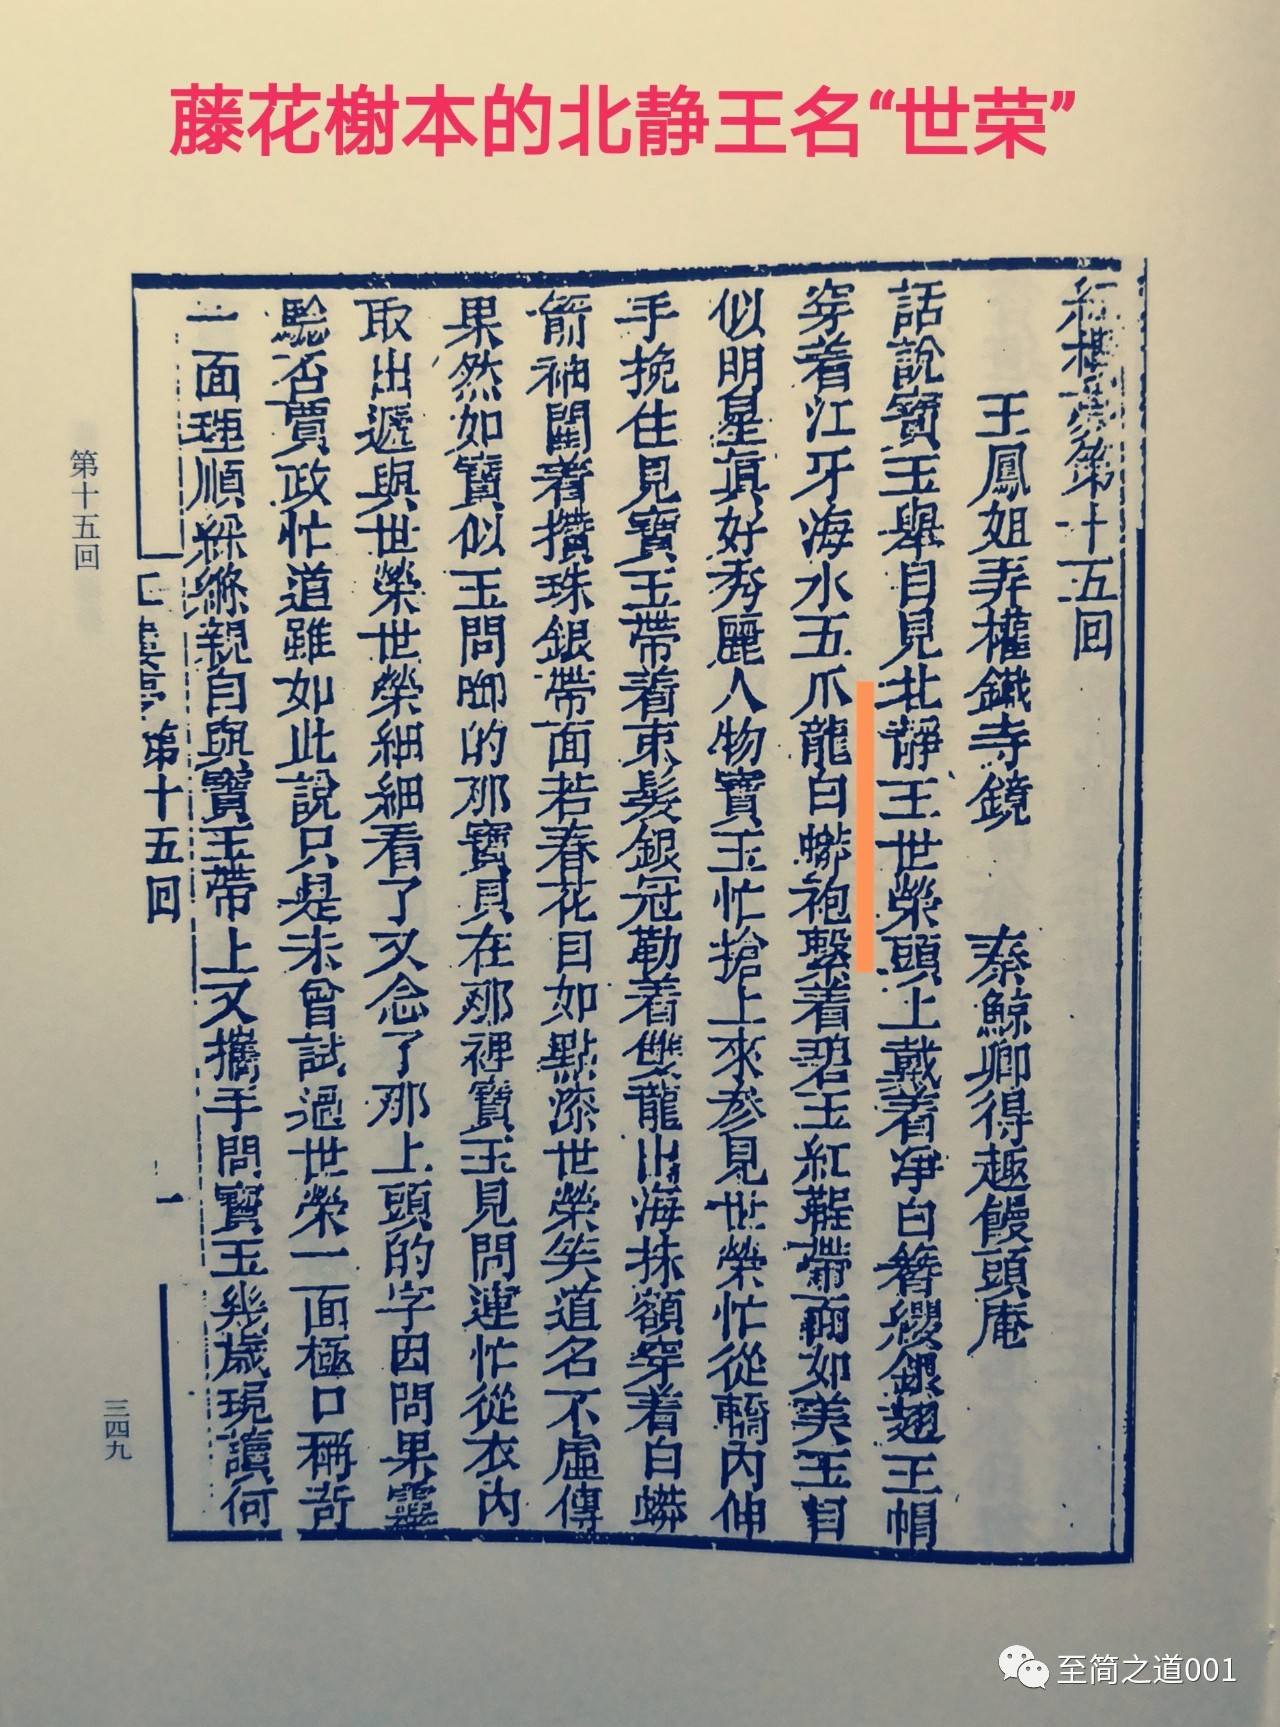 藤花榭本的北静王名“世荣”
紅樓夢第十五回
王鳳姐弄權鐵寺鏡 秦鯨卿得趣饅頭庵
話說寶玉舉目見北靜王世榮頭上戴着淨白簪纓銀翅王帽
穿着江牙海水五爪龍白蟒袍繫着碧玉紅鞓帶面如美玉目
似明星真好秀麗人物寶玉忙搶上來參見世榮忙從轎內伸
手挽住見寶玉帶着束髮銀冠勒着雙龍出海抹額穿着白蟒
箭袖圍着攢珠銀帶面若春花目如點漆世榮笑道名不虛傳
果然如寶似玉問啣的那寶貝在那裡寶玉見問連忙從衣內
取出遞與世榮世榮細細看了又念了那上頭的字因問果靈
驗否賈政忙道雖如此說只是未曾試過世榮一面極口稱奇
一面理順綵縧親自與寶玉帶上又攜手問寶玉幾歲現讀何
第十五回
一
第十五回
三四九
至简之道001